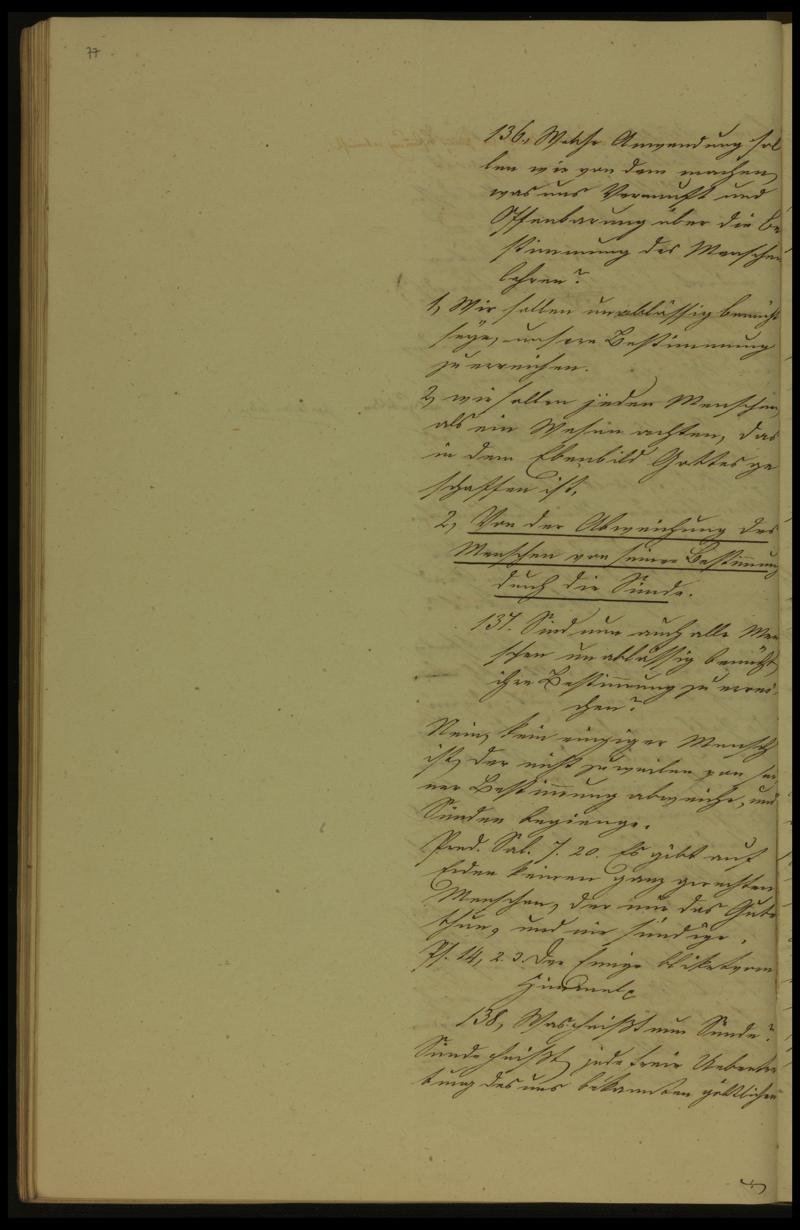 77
136., Welche Anwendung sol
len wir von dem machen,
was uns Vernunft und
Offenbarung über die Be
stimmung des Menschen
lehren?
1, Wir sollen unablässig bemüht
seyn, unsere Bestimmung
zu erreichen.
2, wir sollen jeden Menschen
als ein Wesen achten, das
in dem Ebenbild Gottes ge
schaffen ist.
2, Von der Abweichung des
Menschen von seiner Bestim̅ung
durch die Sünde.
137. Sind nun auch alle Men
schen unablässig bemüht,
ihre Bestim̅ung zu errei
chen?
Nein, kein einziger Mensch
ist, der nicht zuweilen von sei
ner Bestim̅ung abweiche, und
Sünden begienge.
Pred. Sal. 7. 20. Es gibt auf
Erden keinen ganz gerechten
Menschen, der nur das Gute
thue, und nie sündige.
Ps. 14, 2. 3. Der Ewige bliket vom
Himmel
138, Was heißt nun Sünde?
Sünde heißt jede freie Uebertre
tung des uns bekannten göttlichen